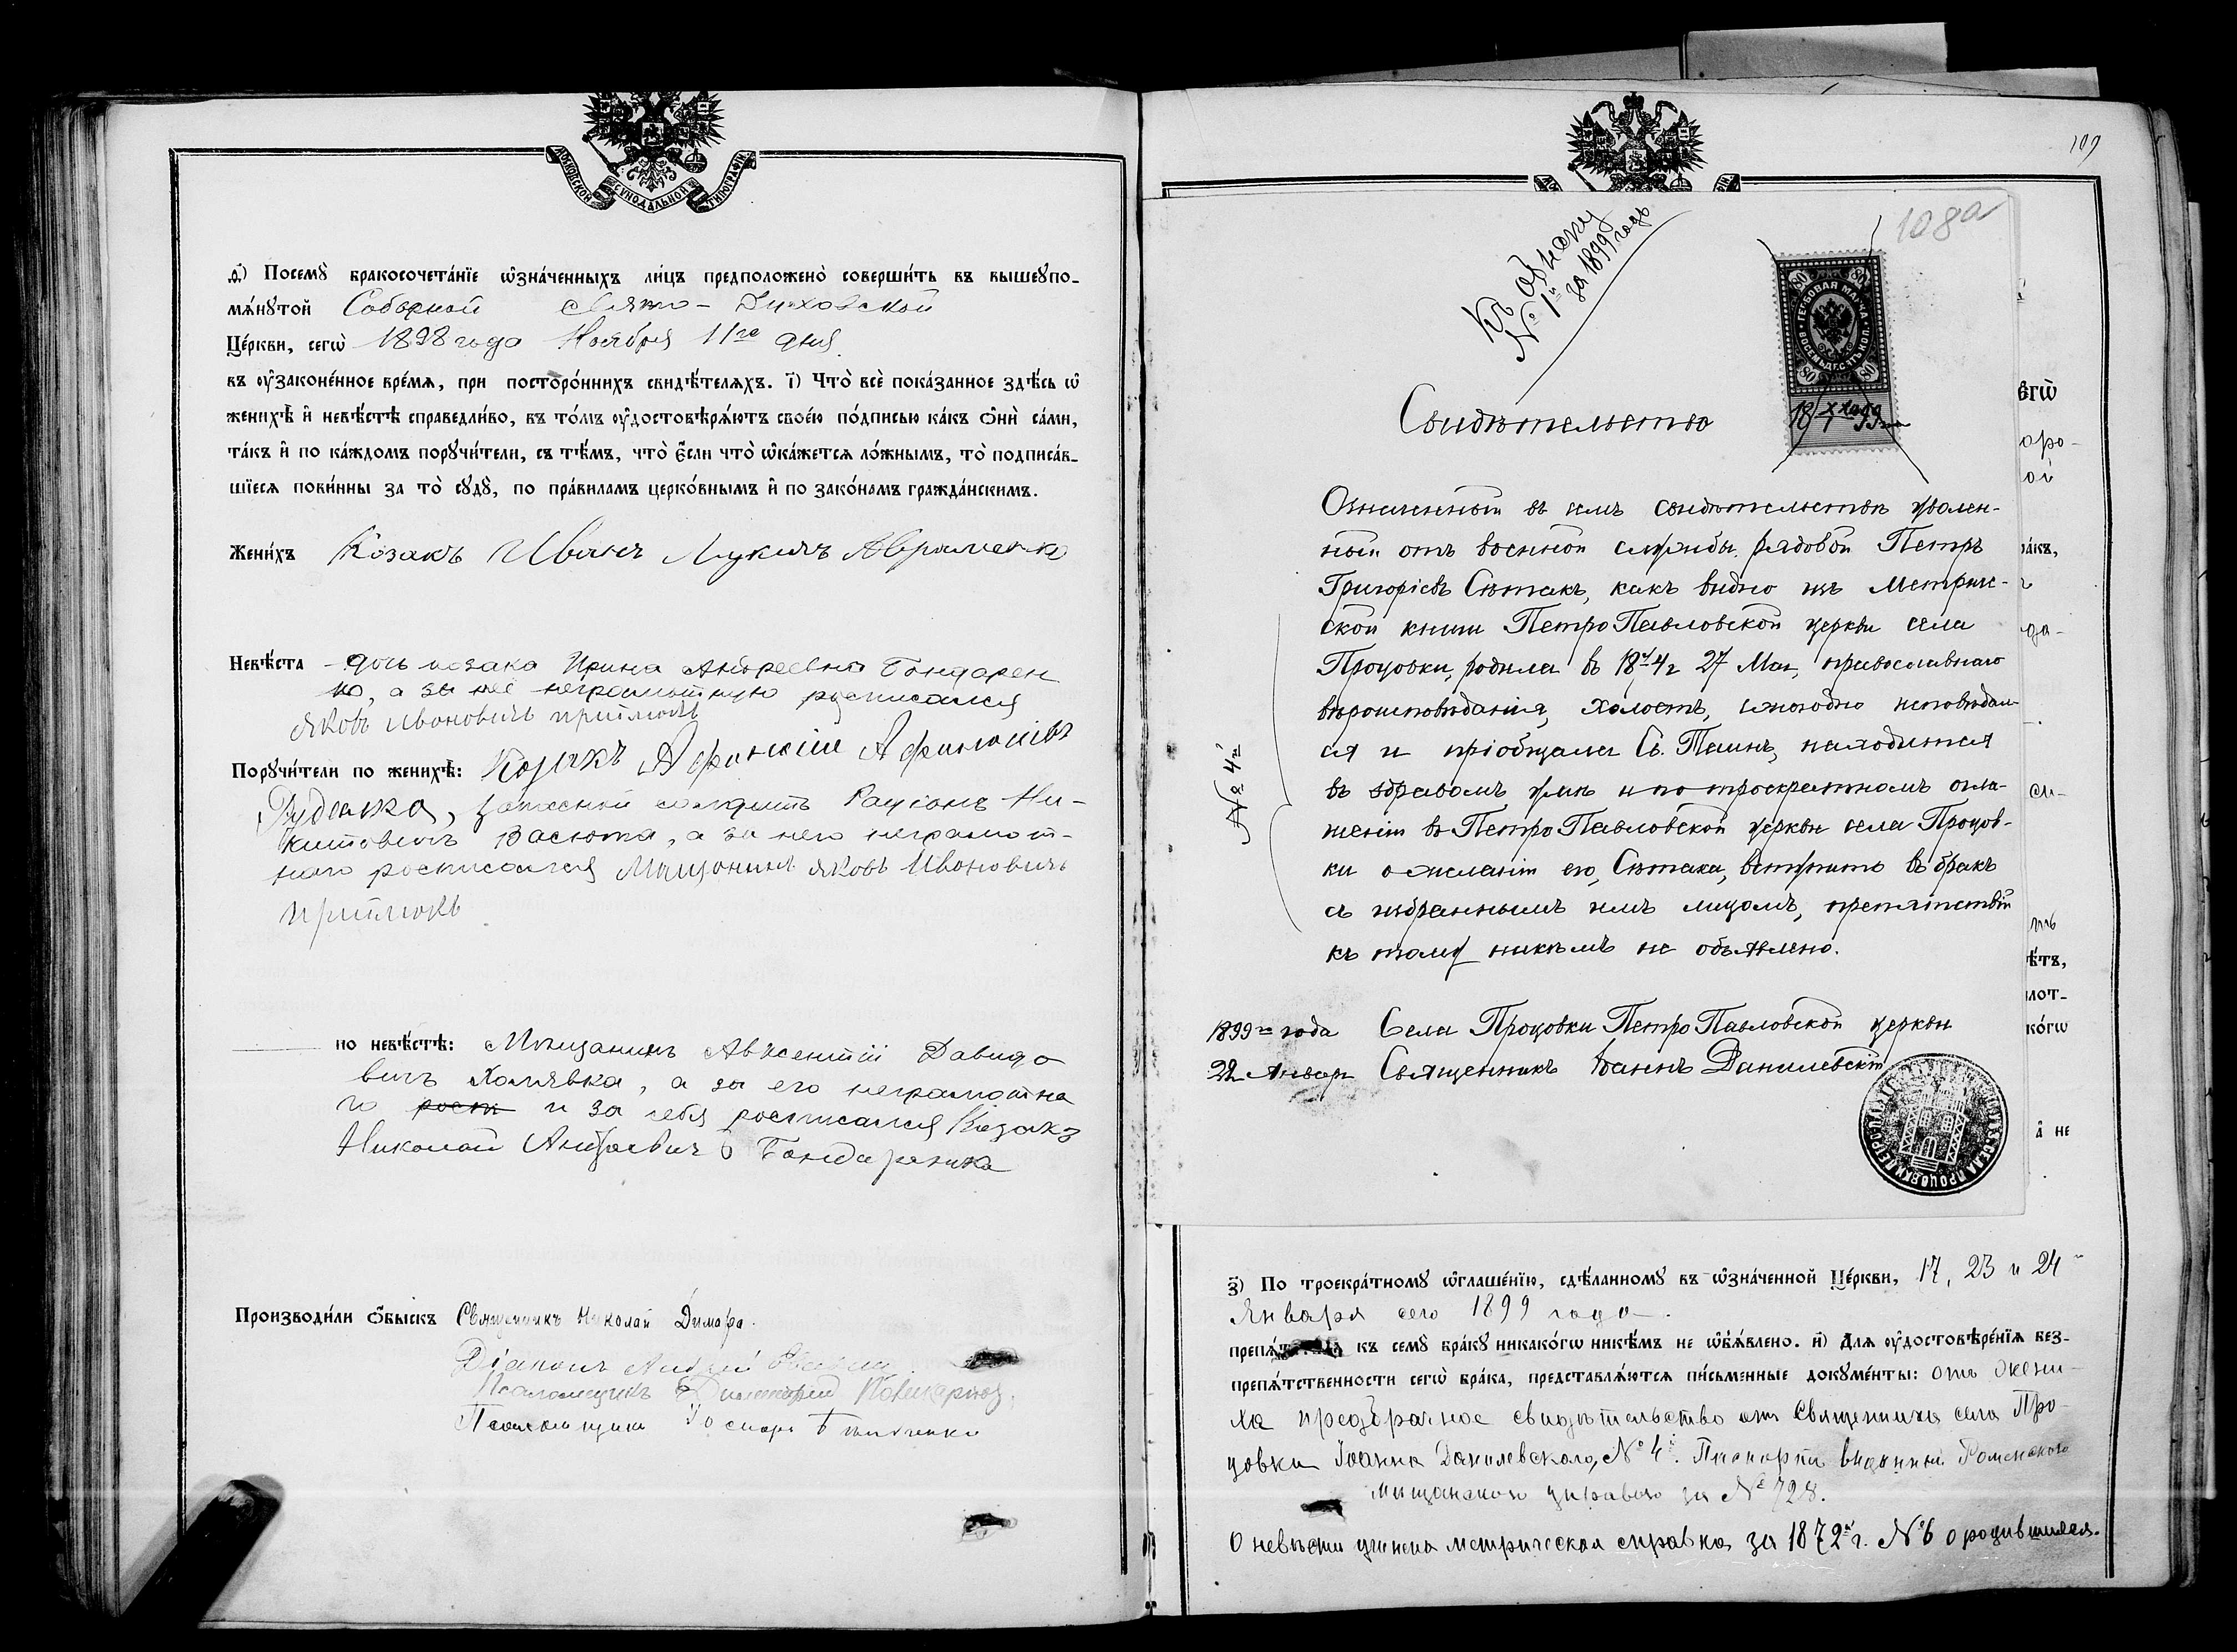 МОСКОВСКОЙ СѴНОДАЛЬНОЙ ТИПОГРАФІИ
ѳ҃) Посемꙋ̀ бракосочета́нїе ѡ҆зна́ченныхъ ли́цъ предположено̀ соверши́ть въ вышеꙋпо-
мѧ́нꙋтой Соборной Свято-Духовской
Це́ркви, сегѡ̀ 1898 года Ноября 11го дня
въ ᲂу҆законе́нное вре́мѧ, при посторо́ннихъ свидѣ́телѧхъ. і҃) Что̀ всѐ пока́занное здѣ́сь ѡ҆
женихѣ̀ и҆ невѣ́стѣ справедли́во, въ то́мъ ᲂу҆достовѣрѧ́ютъ свое́ю по́дписью ка́къ ѻ҆нѝ са́ми,
та́къ и҆ по ка́ждомъ порꙋчи́тели, съ тѣ́мъ, что̀ є҆́сли что̀ ѡ҆ка́жетсѧ ло́жнымъ, то̀ подписа́в-
шїесѧ пови́нны за то̀ сꙋдꙋ̀, по пра́виламъ церко́внымъ и҆ по зако́намъ гражда́нскимъ.
Жени́хъ Козакъ Иванъ Лукичъ Авраменко
Невѣ́ста дочь козака Ирина Андреевна Бондарен
ко, а за неё неграмотную росписался
Яковъ Ивоновичъ Приймокъ
Порꙋчи́тели по женихѣ̀: Козакъ Афинасій Афинасіевъ
Руденко, запасной солдатъ Раціонъ Ни-
китовичъ Васюта, а за него неграмот-
наго росписался Мещонинъ Яковъ Ивоновичъ
Приймокъ
по невѣ́стѣ: Мещанинъ Авксентій Давидо
вичъ Халявка, а за его неграмотна
го росп и за себя росписался Козакъ
Николай Андреевичъ Бондаренко
Производи́ли ѻ҆́быскъ Священникъ Николай Димара.
Діаконъ Андрей
Псаломщикъ Димитрій
Псаломщикъ
109
108а
Къ обыску
№ 1й за 1899 годъ
ГЕРБОВАЯ МАРКА ВОСЕМЬДЕСЯТЪ КОП.
80 80
80 80
Свидѣтельство
Означенной въ семъ свидѣтельствѣ уволен-
ной отъ военной службы рядовой Петръ
Григоріевъ Сѣтакъ, какъ видно изъ Метриче-
ской книги Петро Павловской церкви села
Процовки, родился въ 1874 г 27 Мая, православнаго
вѣроисповѣданія, холостъ, ежегодно исповѣдал-
ся и пріобщался Св. Таинъ, находится
въ здравомъ умѣ и по троекратномъ огла-
шеніи въ Петро Павловской церкви села Процов-
ки о желаніи его, Сѣтака, вступить въ бракъ
съ избраннымъ имъ лицомъ, препятствій
къ тому никѣмъ не объявлено.
№ 4й
1899го года Села Процовки Петро Павловской церкви
22 Января Священникъ Іоаннъ Данилевскій
з҃) По троекра́тномꙋ ѡ҆глаше́нїю, сдѣ́ланномꙋ въ ѡ҆зна́ченной Це́ркви, 17, 23 и 24
Января сего 1899 года
препѧ́тствїѧ къ семꙋ̀ бра́кꙋ никако́гѡ никѣ́мъ не ѡ҆б̾ѧ́влено. и҃) Длѧ ᲂу҆достовѣре́нїѧ без-
препѧ́тственности сегѡ̀ бра́ка, представлѧ́ютсѧ пи́сьменные докꙋме́нты: отъ жени-
ха предбрачное свидѣтельство отъ Священника села Про-
цовки Іоанна Данилевскаго, № 4й. Паспортъ виданный Роменскою
Мищанскою управою за № 728.
О невѣсти учинена метрическая справка за 1872й г. № 6 о родившихся.